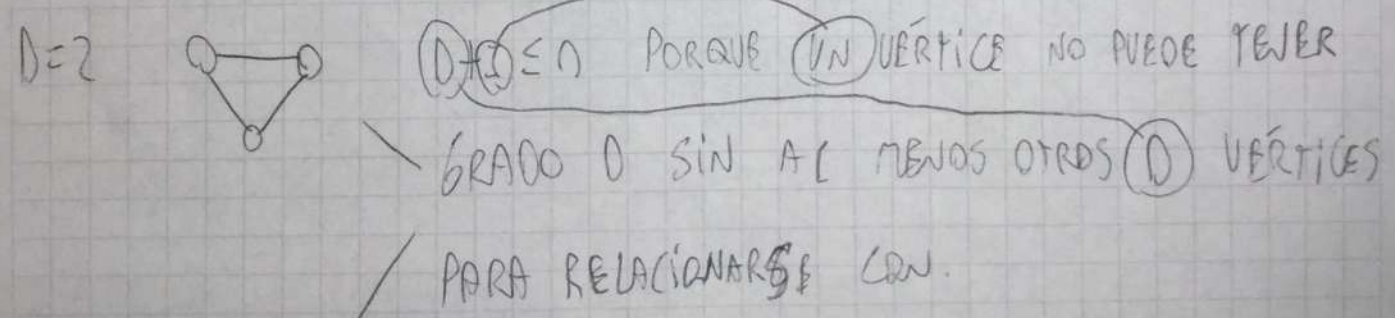 D=2 D+1≤n PORQUE UN VÉRTICE NO PUEDE TENER
GRADO D SIN AL MENOS OTROS D VÉRTICES
PARA RELACIONARSE CON.